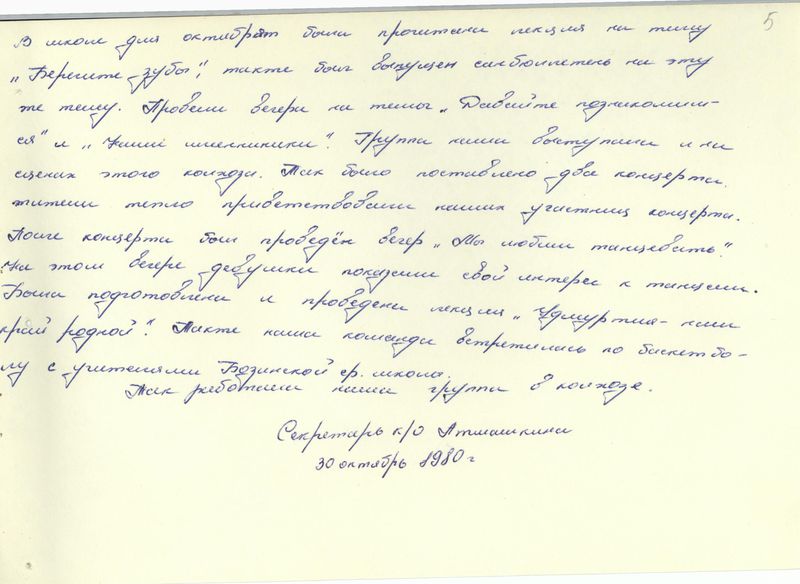 5
В школе для октябрят была прочитана лекция на тему
„Берегите зубы", также был выпущен санбюллетень на эту
же тему. Провели вечера на темы „Давайте познакомим-
ся" и „Наши именинники". Группа наша выступала и на
сценах этого колхоза. Так было поставлено два концерта.
жители тепло приветствовали наших участниц концерта.
После концерта был проведён вечер „Мы любим танцевать".
На этом вечере девушки показали свой интерес к танцам.
Была подготовлена и проведена лекция „Удмуртия – наш
край родной". Также наша команда встретилась по баскетбо-
лу с учителями Бозинской ср. школы.
Так работала наша группа в колхозе.
Секретарь к/о Атмашкина
30 октябрь 1980 г